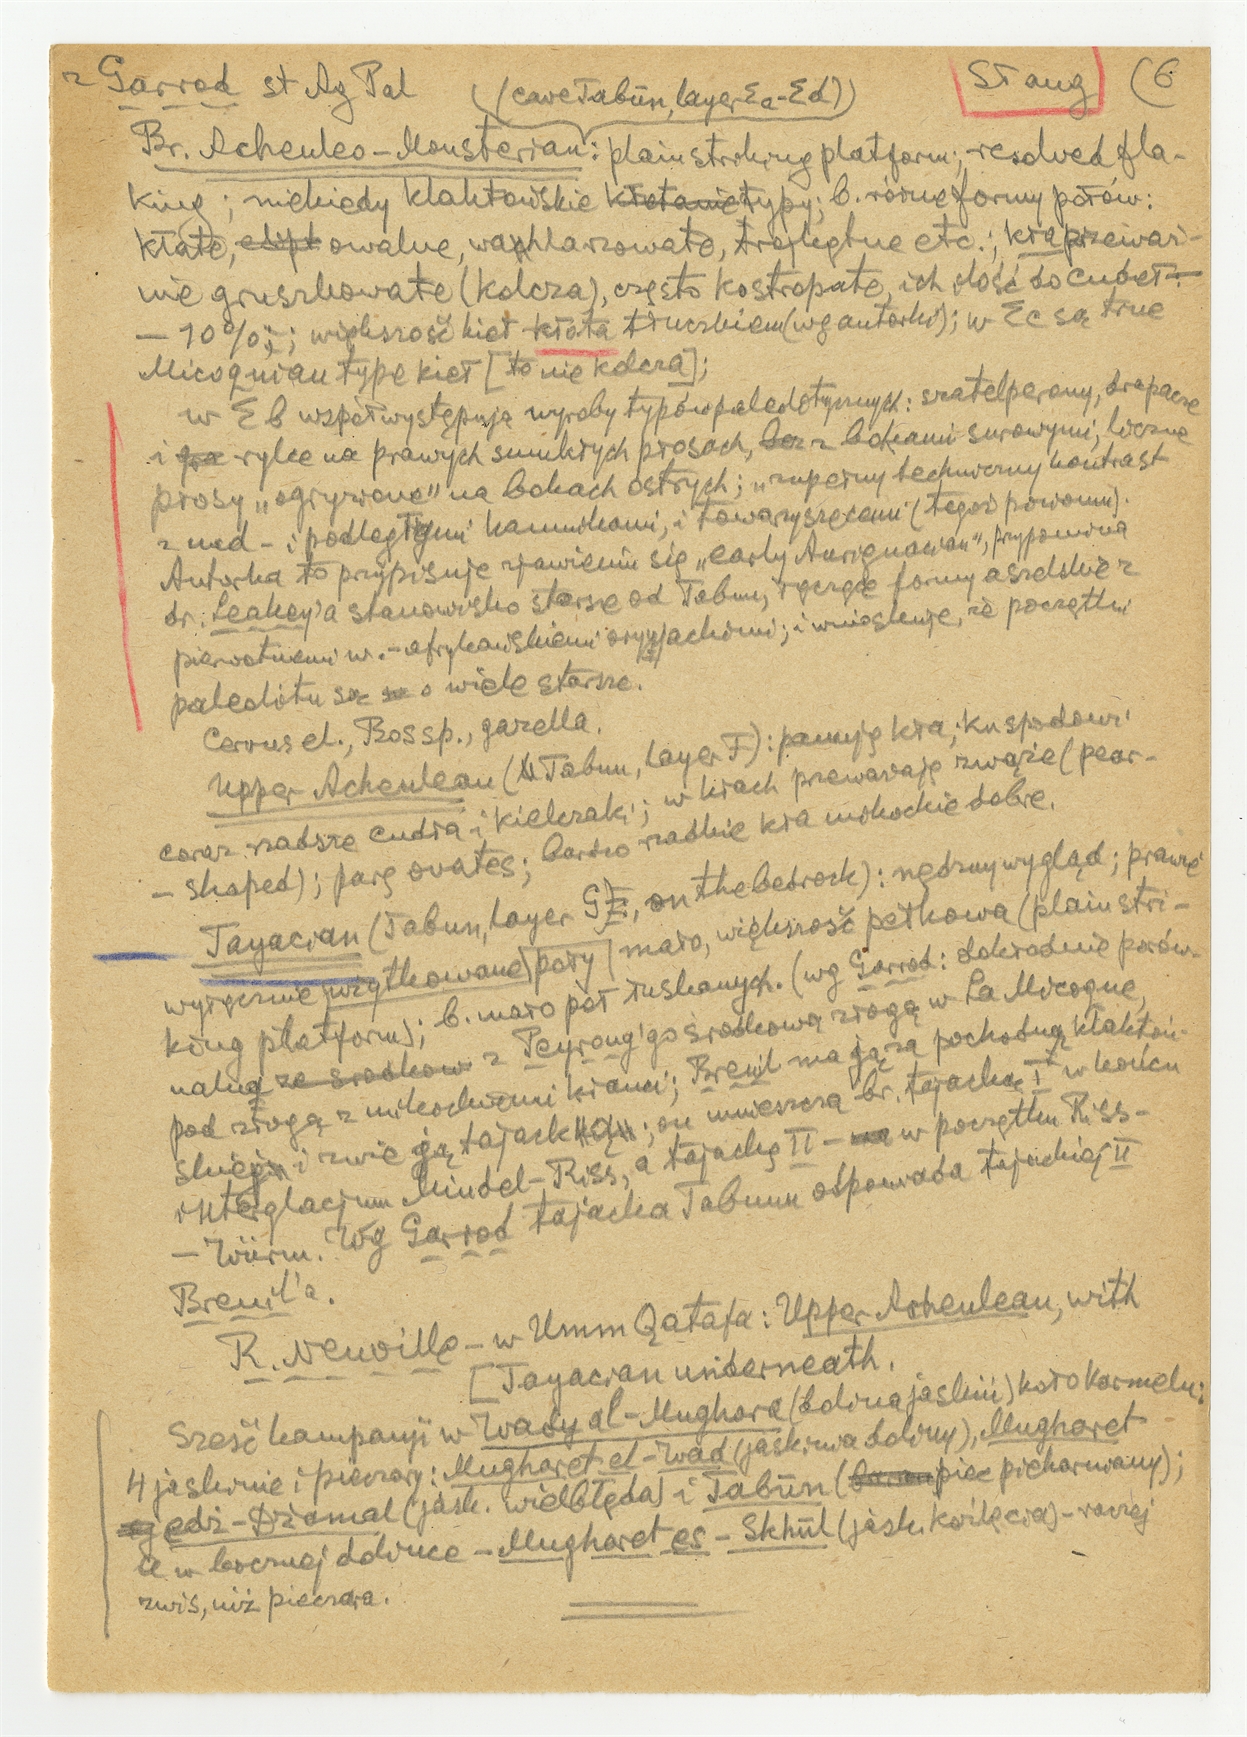 z Garrod st Ag Pal ((cave Tabūn, layer Ea-Ed)) St ang (6
Br. Acheuleo-Mousterian: plain striking platform; resolved fla-
king; niekiedy klaktońskie typy; b. różne formy połów:
kłate, owalne, wachlarzowate, trójkątne etc.; kła przeważ-
nie gruszkowate (kolcza), często kostropate, ich ilość do cudeł
- 10%; większość kieł kłota tłuczkiem (wg autorki); w Ec są true
Micoquian type kieł [to nie kolcza];
w Eb współwystępują wyroby typów paleolitycznych: szatelperony, drapacze
i rylce na prawych smukłych płosach, z bokami surowymi; liczne
płosy „ogryzione" na bokach ostrych; „zupełny techniczny kontrast
z nad- i podległymi kamnikami, i towarzyszącemi (tegoż poziomu).
Autorka to przypisuje zjawieniu się „early Aurignacian", przypomina
dr. Leakey'a stanowisko starsze od Tabun, łączące formy aszelskie z
pierwotnemi w.-afrykańskiemi oryniackimi; i wnioskuje, że początki
paleolitu są o wiele starsze.
Cervus el., Bos sp., gazella.
Upper Acheulean (Tabun, layer F): panuje kła; ku spodowi
coraz rzadsze cudła i kielczaki; w kłach przeważają zwąże (pear-
-shaped); parę ovates; bardzo rzadkie kła mikockie dobre.
Tayacian (Tabun, layer G, on the bedrock): nędzny wygląd; prawie
wyłącznie użytkowane poły mało, większość pełkowa (plain stri-
king platform); b. mało pół łuskanych. (wg Garrod: dokładnie porów-
nalną z Peyrony'go środkową złogą w La Micoque,
pod złogą z mikockiemi kłami; Breuil ma ją za pochodną klaktoń-
skiej i zwie ją tajacką; on umieszcza br. tajacką I w końcu
interglacjum Mindel-Riss, a tajacką II - w początku Riss-
-Würm. Wg Garrod tajacka Tabunu odpowiada tajackiej II
Breuil'a.
R. Neuville - w Umm Qatafa: Upper Acheulean, with
[Tayacian underneath.
Sześć kampanji w Wady al-Mughara (dolina jaskiń) koło Karmelu:
4 jaskinie i pieczary: Mugharet el-Wad (jaskinia doliny), Mugharet
edż-Dżamal (jask. wielbłąda) i Tabūn (piec piekarniany);
a w bocznej dolince - Mugharet es-Skhūl (jask. koźlęcia) - raczej
zwis, niż pieczara.